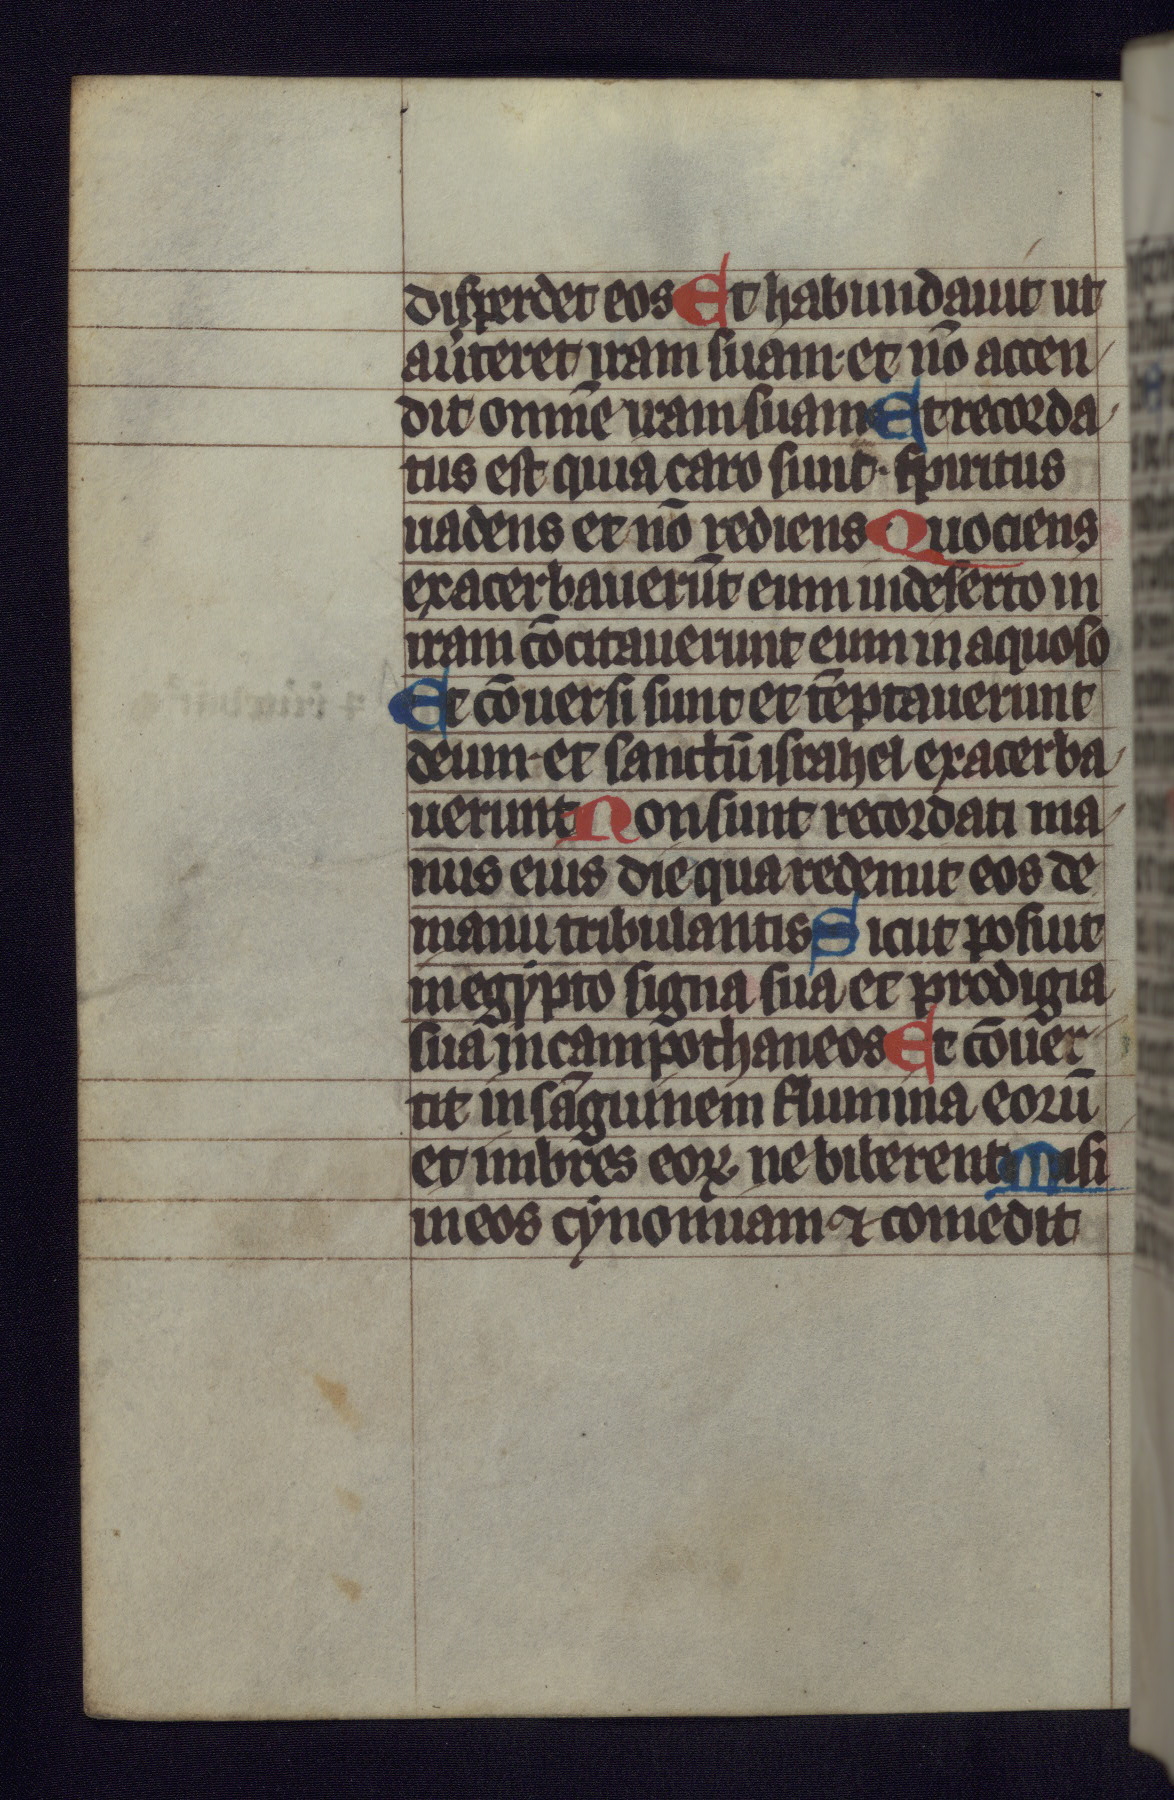 disperdet eos Et habundauit ut
auteret iram suam · et nō accen
dit omnē iram suam Et recorda
tus est quia caro sunt · spiritus
uadens et nō rediens Quociens
exacerbauerūt eum in deserto in
iram cōcitauerunt eum in aquoso
Et cōuersi sunt et tēptauerunt
deum · et sanctū israhel exacerba
uerunt Non sunt recordati ma
nus eius die qua redemit eos de
manu tribulantis Sicut posuit
in egypto signa sua et prodigia
sua in campo thaneos Et cōuer
tit in sāguinem flumina eorū
et imbres eoꝝ ne biberent Misi
in eos cynomiam ⁊ comedit